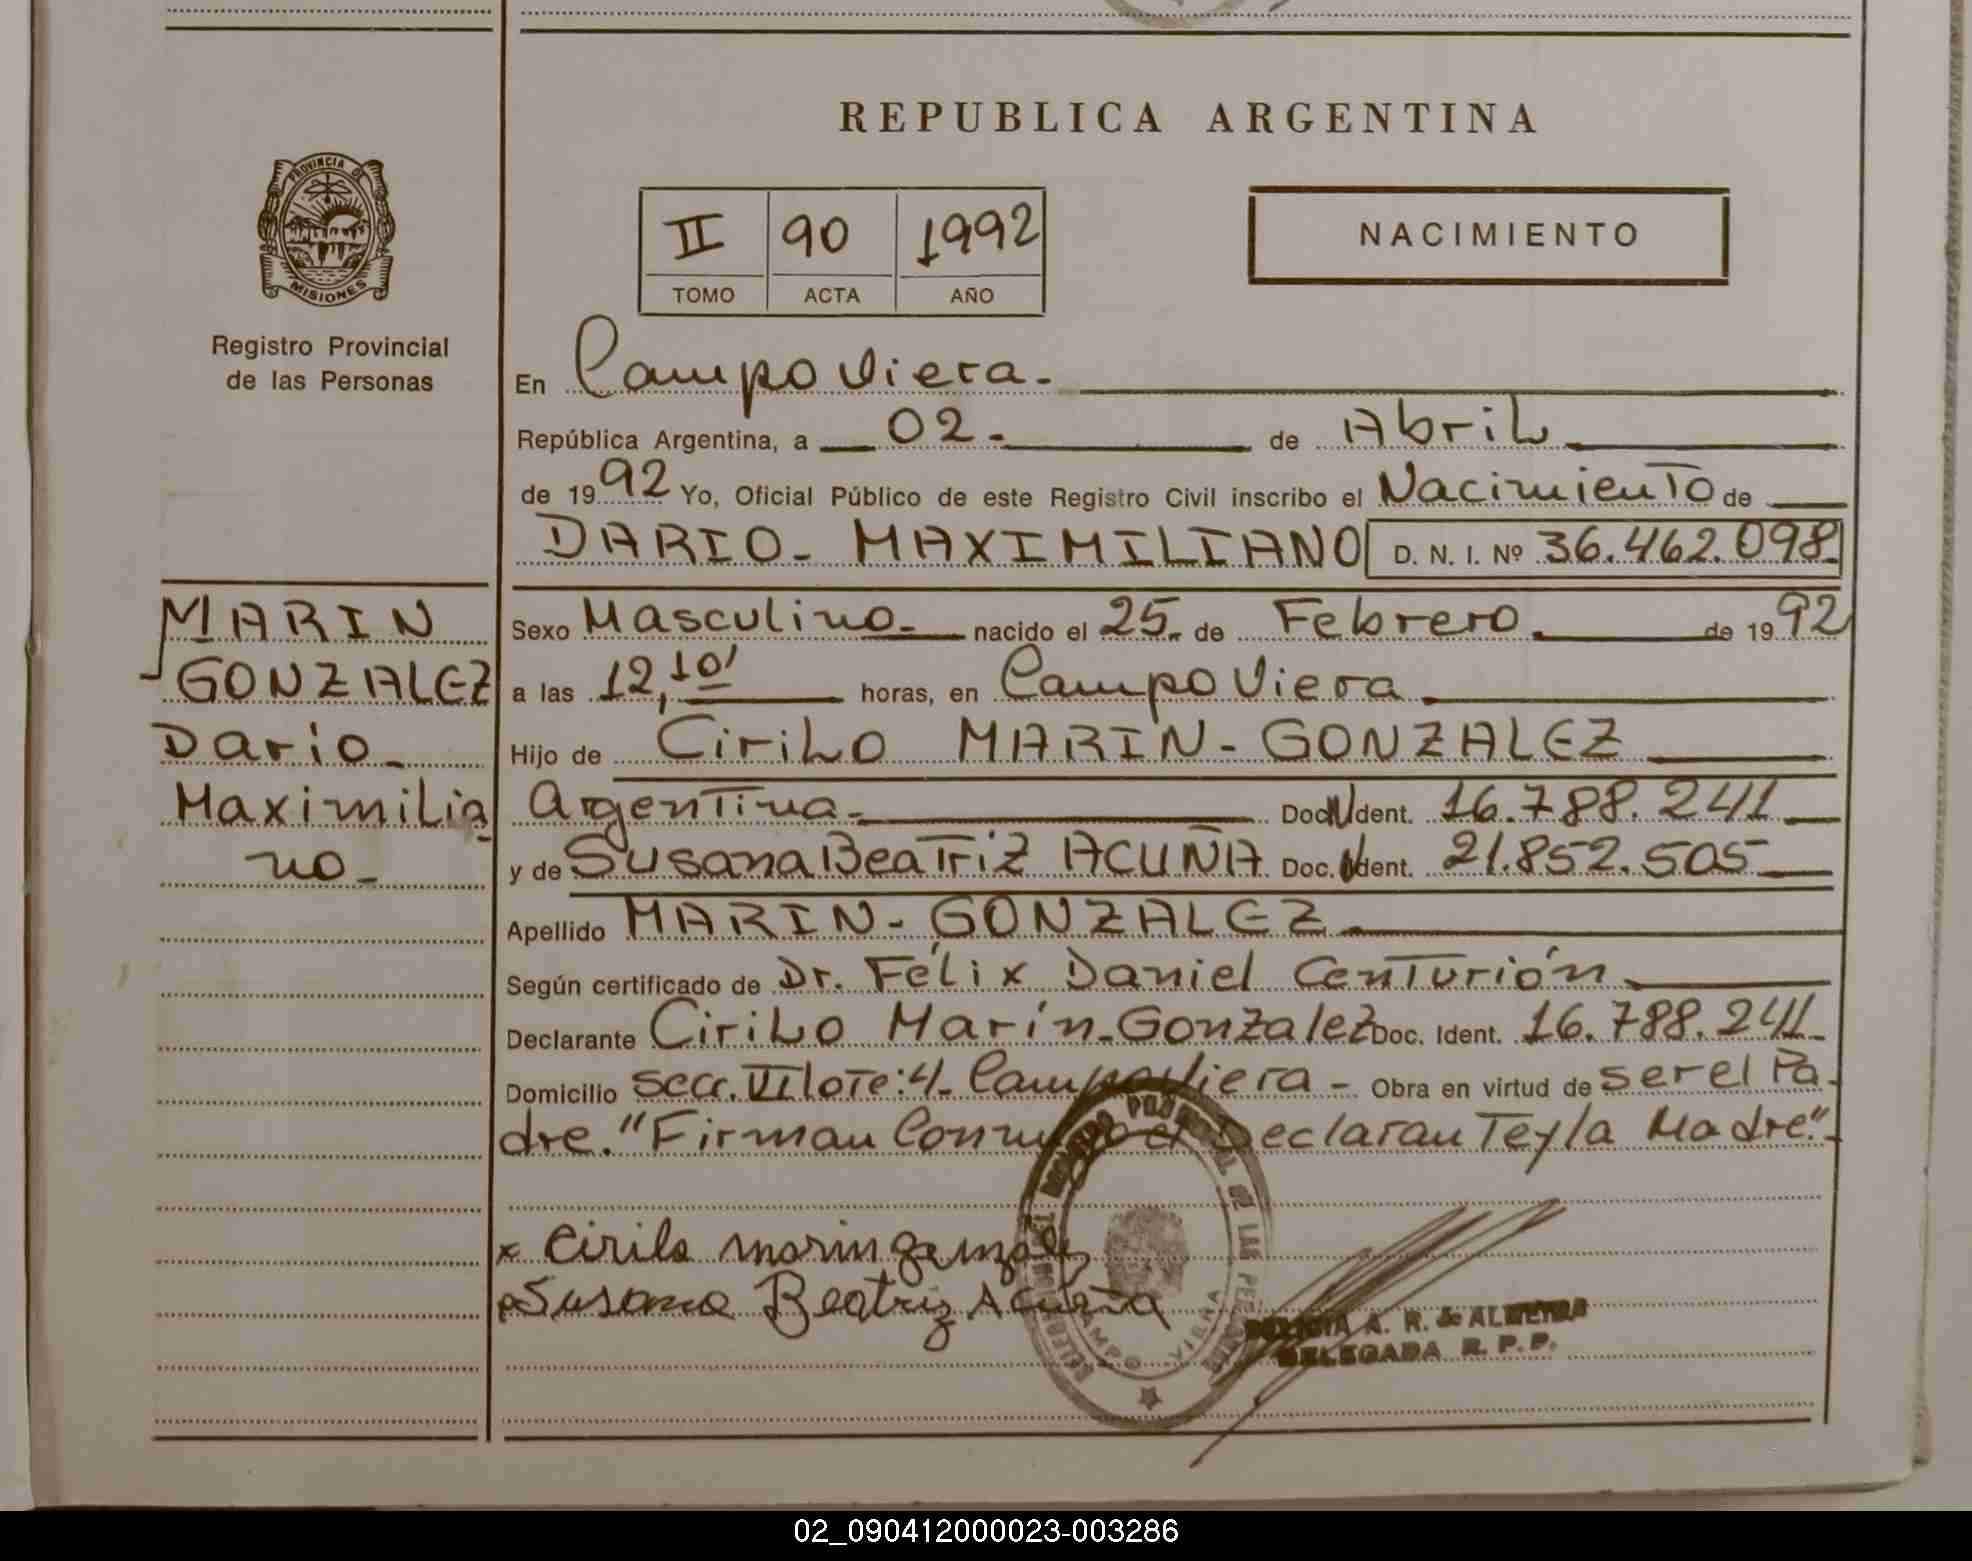 REPUBLICA ARGENTINA
PROVINCIA DE
MISIONES
Registro Provincial
de las Personas
II 90 1992
TOMO ACTA AÑO
NACIMIENTO
En Campo Viera.-
República Argentina, a 02.- de Abril
de 1992 Yo, Oficial Público de este Registro Civil inscribo el Nacimiento de
DARIO- MAXIMILIANO D. N. I. Nº 36.462.098
MARIN
GONZALEZ
Dario-
Maximilia
no-
Sexo Masculino- nacido el 25. de Febrero de 1992
a las 12,10' horas, en Campo Viera
Hijo de Cirilo MARIN-GONZALEZ
Argentina- Doc. Ident. 16.788.241
y de Susana Beatriz ACUÑA Doc. Ident. 21.852.505
Apellido MARIN-GONZALEZ
Según certificado de Dr. Félix Daniel Centurión
Declarante Cirilo Marín-Gonzalez Doc. Ident. 16.788.241
Domicilio Secc. VI lote:4- Campo Viera- Obra en virtud de ser el Pa-
dre. "Firman Conmigo el Declarante y la Madre".-
x Cirilo marin gonzalez
Susana Beatriz Acuña
CAMPO VIERA
A. R. de ALMEIDA
DELEGADA R. P. P.
02_090412000023-003286